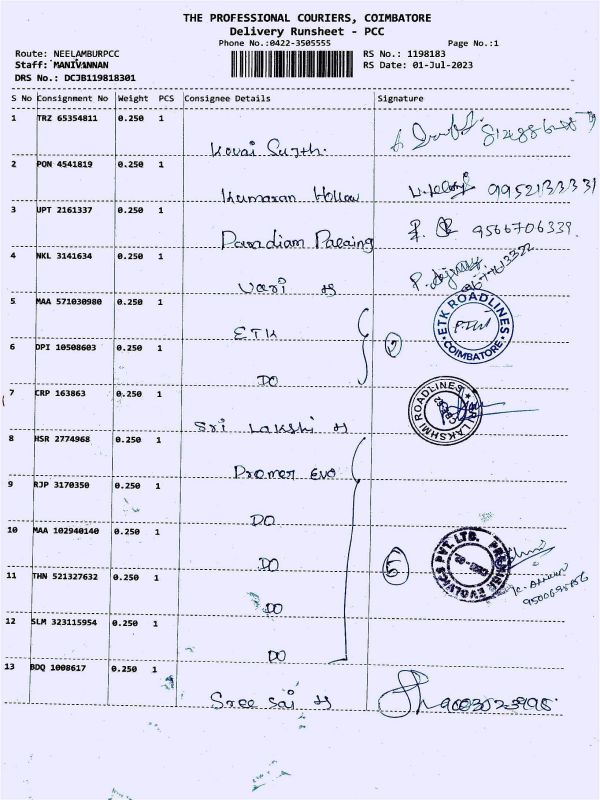 THE PROFESSIONAL COURIERS, COIMBATORE
Delivery Runsheet - PCC
Phone No.:0422-3505555 Page No.:1
Route: NEELAMBURPCC RS No.: 1198183
Staff: MANIVANNAN RS Date: 01-Jul-2023
DRS No.: DCJB119818301
S No Consignment No Weight PCS Consignee Details Signature
1 TRZ 65354811 0.250 1
Kovai
2 PON 4541819 0.250 1
Kumaran Hollow 9952133331
3 UPT 2161337 0.250 1
9566706339.
4 NKL 3141634 0.250 1
Vari
5 MAA 571030980 0.250 1
ETK ETK ROADLINES COIMBATORE
6 DPI 10508603 0.250 1
DO
7 CRP 163863 0.250 1
Sri Lakshi LAKSHMI ROADLINES
8 HSR 2774968 0.250 1
Promer Evo
9 RJP 3170350 0.250 1
DO
10 MAA 102940140 0.250 1
DO 5 EVOLVICS PVT. LTD.
11 THN 521327632 0.250 1
DO
12 SLM 323115954 0.250 1
DO
13 BDQ 1008617 0.250 1
Sree Sai